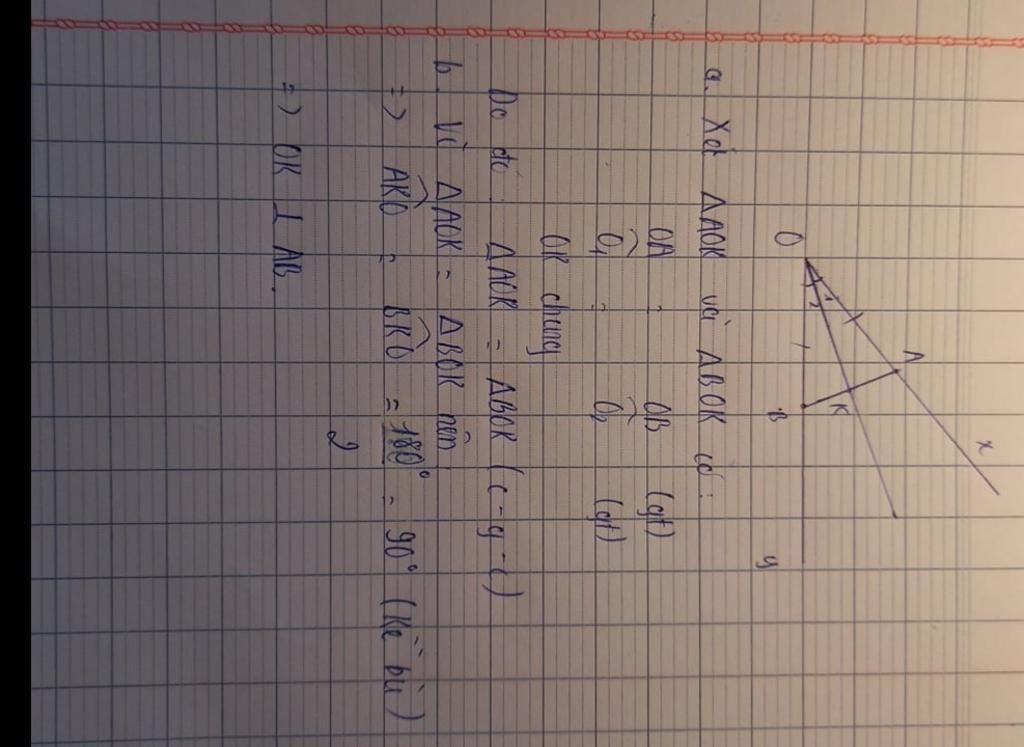 x
A
O
1
2
K
B
y
a. Xét ΔAOK và ΔBOK có:
OA = OB (gt)
Ô₁ = Ô₂ (gt)
OK chung
Do đó: ΔAOK = ΔBOK (c-g-c)
b. Vì ΔAOK = ΔBOK nên
=> \widehat{AKO} = \widehat{BKO} = 180°/2 = 90° (Kề bù)
=> OK ⊥ AB.